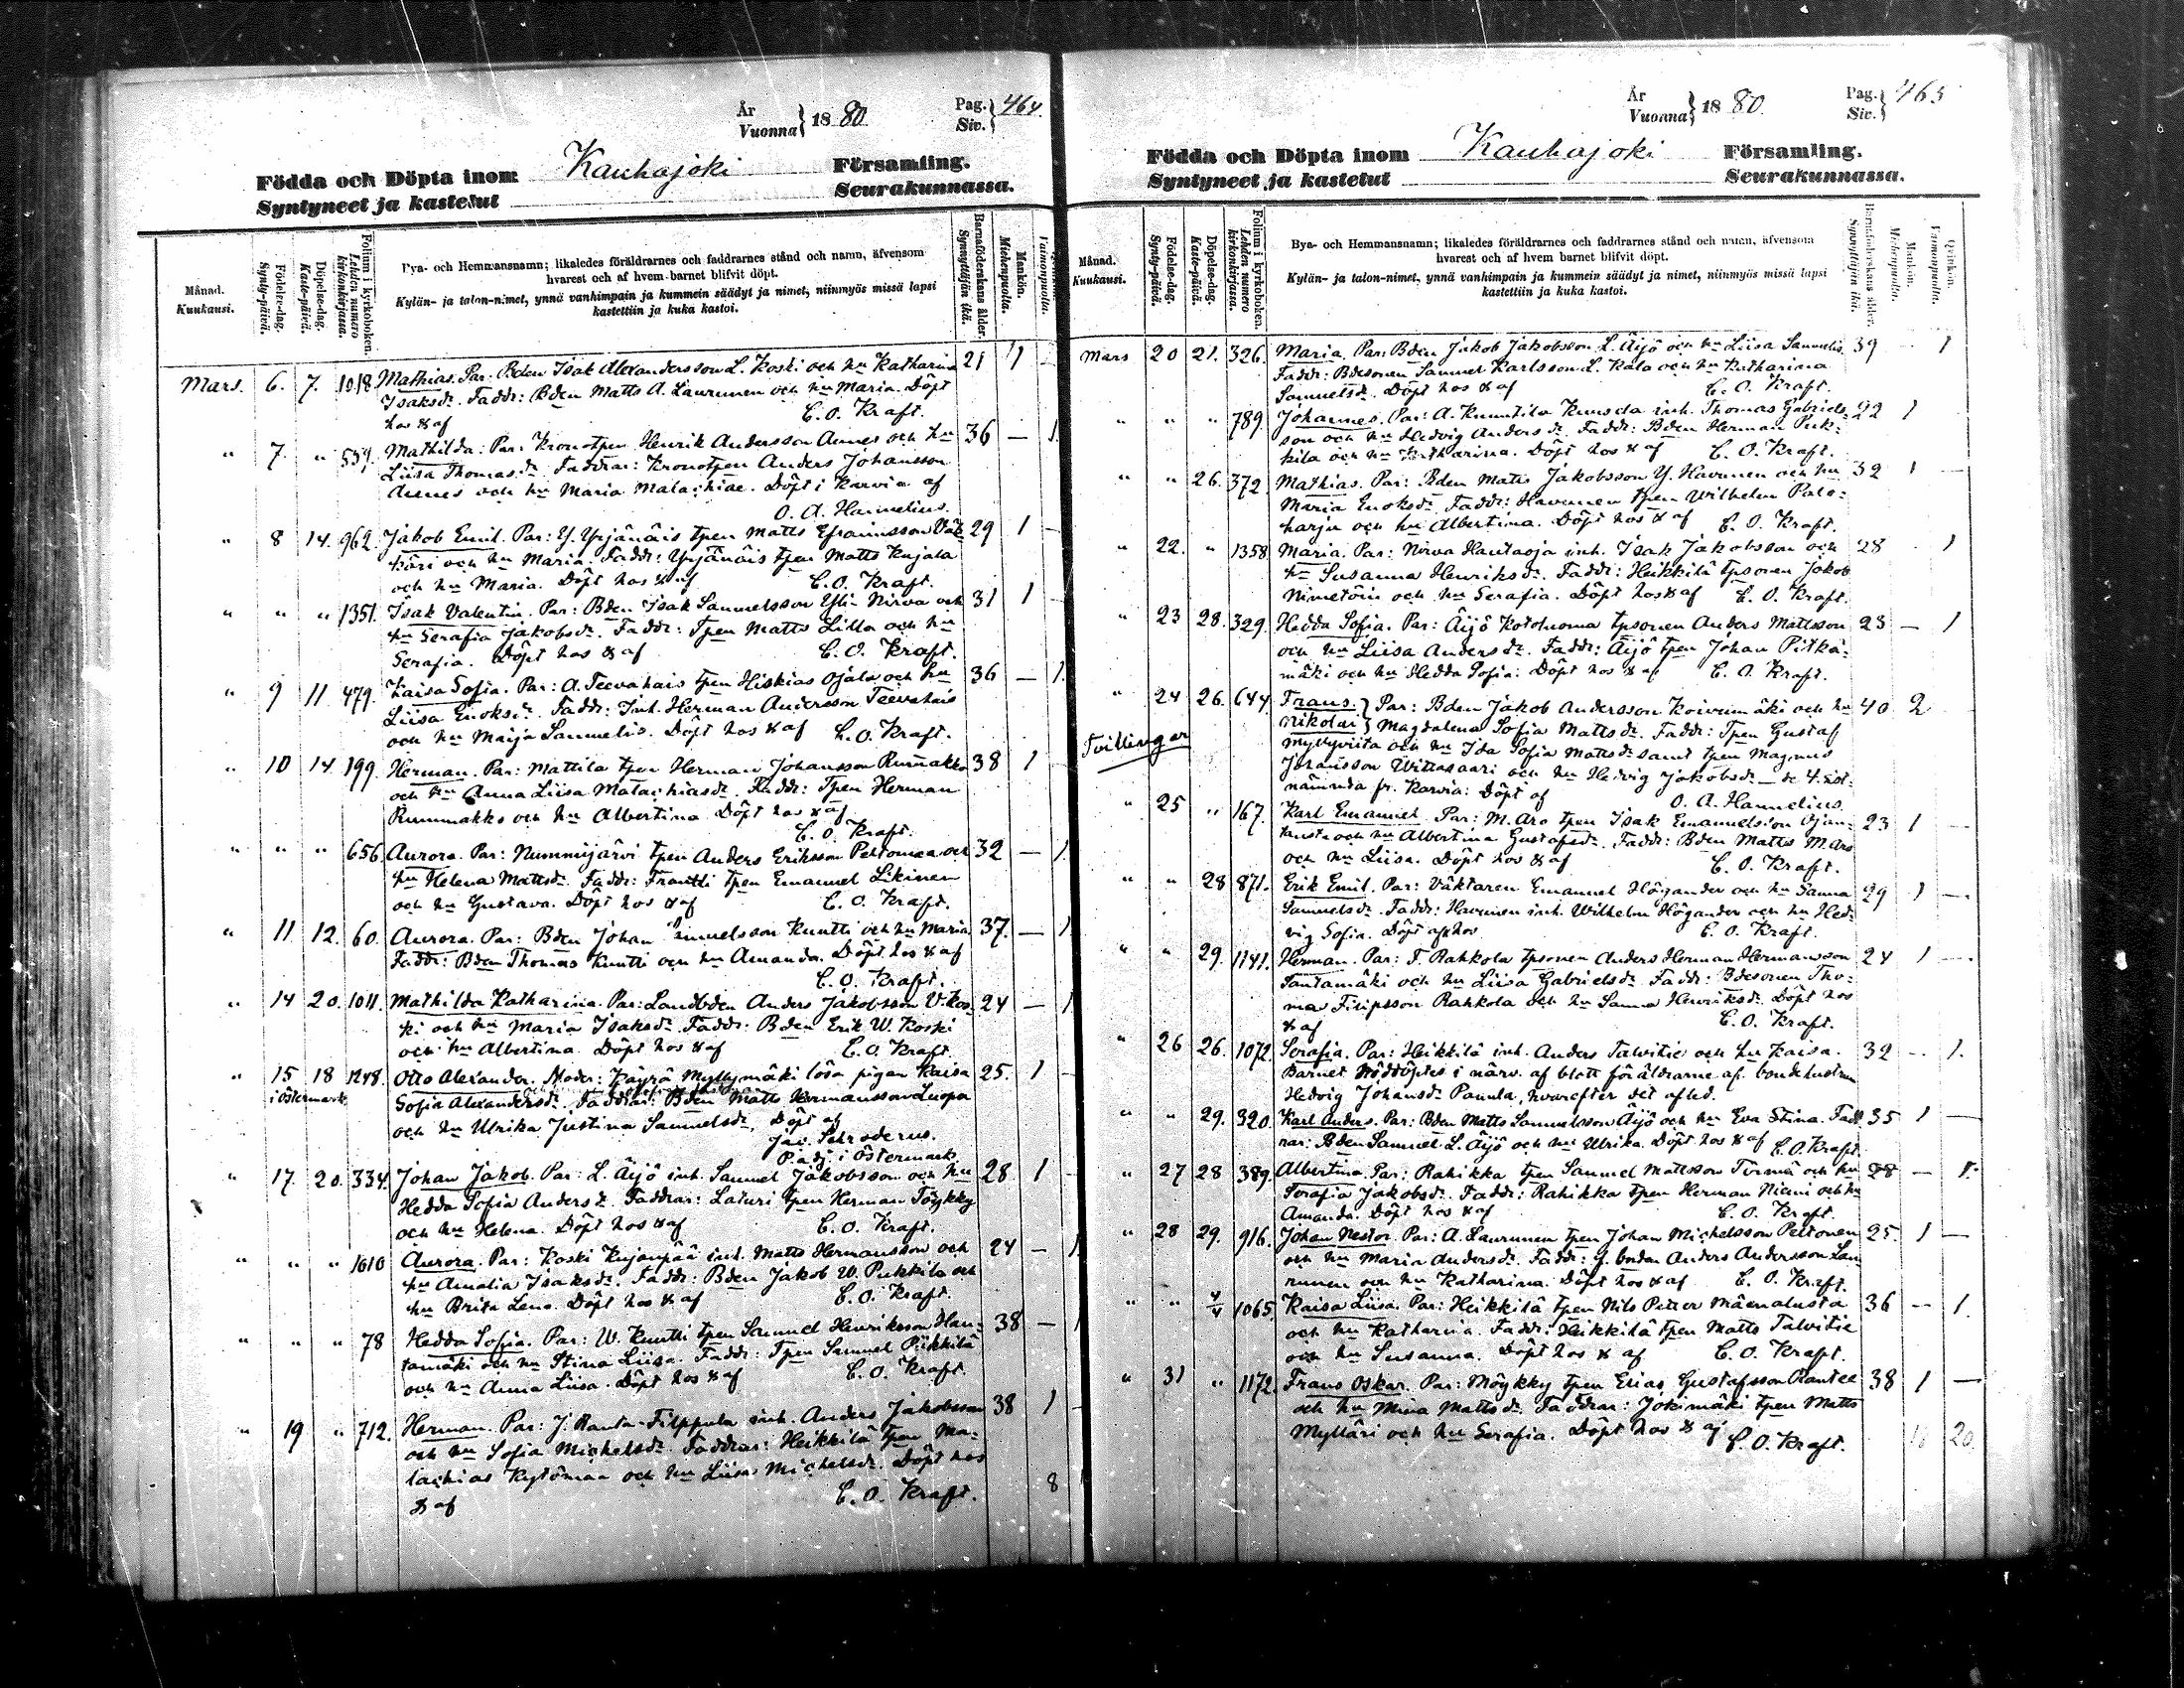 År
Vuonna } 1880
Pag.
Siv. } 464.
Födda och Döpta inom Kauhajoki Församling.
Syntyneet ja kastetut Seurakunnassa.
Månad.
Kuukausi.
Födelse-dag.
Synty-päivä.
Döpelse-dag.
Kaste-päivä.
Folium i kyrkoboken.
Lehden numero kirkonkirjassa.
Bya- och Hemmansnamn; likaledes föräldrarnes och faddrarnes stånd och namn, äfvensom
hvarest och af hvem barnet blifvit döpt.
Kylän- ja talon-nimet, ynnä vanhimpain ja kummein säädyt ja nimet, niinmyös missä lapsi
kastettiin ja kuka kastoi.
Barnaföderskans ålder.
Synnyttäjän ikä.
Mankön.
Miehenpuolta.
Vaimonpuolta.
Mars. 6. 7. 1018. Mathias. Par: Bden Isak Alexandersson L. Koski och hu Katharina 21 1
Isaksdr. Faddr: Bden Matts A. Laurunen och hu Maria. Döpt
hos & af C. O. Kraft.
" 7. " 539. Mathilda: Par: Kronotpen Henrik Andersson Annes och hu 36 — 1.
Liisa Thomasdr. Faddrar: Kronotpen Anders Johansson
Annes och hu Maria Malachiae. Döpt i Karvia af
O. A. Hannelius.
" 8 14. 962. Jakob Emil. Par: Y. Yrjänäis tpen Matts Efraimsson Väk- 29 1 —
käri och hu Maria. Faddr: Yrjänäis tpen Matts Kujala
och hu Maria. Döpt hos & af C. O. Kraft.
" " " 1351. Isak Valentin. Par: Bden Isak Samuelsson Yli-Nirva och 31 1
hu Serafia Jakobsdr. Faddr: Tpen Matts Lilla och hu
Serafia. Döpt hos & af C. O. Kraft.
" 9 11 479. Kaisa Sofia. Par: A. Teevahais tpen Hiskias Ojala och hu 36 — 1.
Liisa Enoksdr. Faddr: Inh. Herman Andersson Teevahais
och hu Maija Samuelis. Döpt hos & af C. O. Kraft.
" 10 14 199. Herman. Par: Mattila tpen Herman Johansson Rummakko 38 1
och hu Anna Liisa Malachiasdr. Faddr: Tpen Herman
Rummakko och hu Albertina. Döpt hos & af
C. O. Kraft.
" " " 656. Aurora. Par: Nummijärvi tpen Anders Eriksson Peltomaa och 32 — 1.
hu Helena Mattsdr. Faddr: Frantti tpen Emanuel Likinen
och hu Gustava. Döpt hos & af C. O. Kraft.
" 11 12. 60. Aurora. Par: Bden Johan Samuelsson Kuntti och hu Maria. 37. — 1
Faddr: Bden Thomas Kuntti och hu Amanda. Döpt hos & af
C. O. Kraft.
" 14 20. 1011. Mathilda Katharina. Par: Landbden Anders Jakobsson V. Kos- 24 — 1
ki och hu Maria Isaksdr. Faddr: Bden Erik W. Koski
och hu Albertina. Döpt hos & af C. O. Kraft.
" 15 18 1248. Otto Alexander. Moder: Käyrä Myllymäki lösa pigan Kaisa 25. 1 —
i Östermark Sofia Alexandersdr. Faddrar: Bden Matts Hermansson Luopa
och hu Ulrika Justina Samuelsdr. Döpt af
Jav. Schroderus.
P. adj. i Östermark
" 17. 20. 334. Johan Jakob. Par: L. Äijö inh. Samuel Jakobsson och hu 28 1 —
Hedda Sofia Andersdr. Faddrar: Laturi tpen Herman Töykky
och hu Helena. Döpt hos & af C. O. Kraft.
" " " 1010 Aurora. Par: Koski Kujanpää inh. Matts Hermansson och 24 — 1.
hu Amalia Isaksdr. Faddr: Bden Jakob W. Pukkila och
hu Brita Lena. Döpt hos & af C. O. Kraft.
" " " 78 Hedda Sofia. Par: W. Kuntti tpen Samuel Henriksson Han- 38 — 1
tamäki och hu Stina Liisa. Faddr: Tpen Samuel Piikkilä
och hu Anna Liisa. Döpt hos & af C. O. Kraft.
" 19 " 712. Herman. Par: J. Ranta-Filppula inh. Anders Jakobsson 38 1 —
och hu Sofia Michelsdr. Faddrar: Heikkilä tpen Ma-
lachias Kytömaa och hu Liisa Michelsdr. Döpt hos
& af C. O. Kraft. 8
År
Vuonna } 1880.
Pag.
Siv. } 465
Födda och Döpta inom Kauhajoki Församling.
Syntyneet ja kastetut Seurakunnassa.
Månad.
Kuukausi.
Födelse-dag.
Synty-päivä.
Döpelse-dag.
Kaste-päivä.
Folium i kyrkoboken.
Lehden numero kirkonkirjassa.
Bya- och Hemmansnamn; likaledes föräldrarnes och faddrarnes stånd och namn, äfvensom
hvarest och af hvem barnet blifvit döpt.
Kylän- ja talon-nimet, ynnä vanhimpain ja kummein säädyt ja nimet, niinmyös missä lapsi
kastettiin ja kuka kastoi.
Barnaföderskans ålder.
Synnyttäjän ikä.
Mankön.
Miehenpuolta.
Qvinkön.
Vaimonpuolta.
Mars 20 21. 326. Maria. Par: Bden Jakob Jakobsson L. Äijö och hu Liisa Samuelis. 39 — 1
Faddr: Bdesonen Samuel Karlsson L. Kala och hu Katharina
Samuelsdr. Döpt hos & af C. O. Kraft.
" " " 789. Johannes. Par: A. Knuutila inh. Thomas Gabriels- 22 1
son och hu Hedvig Andersdr. Faddr: Bden Herman Puk-
kila och hu Katharina. Döpt hos & af C. O. Kraft.
" " 26. 372. Mathias. Par: Bden Matts Jakobsson Y. Havunen och hu 32 1 —
Maria Enoksdr. Faddr: Havunen tpen Wilhelm Palo-
harju och hu Albertina. Döpt hos & af C. O. Kraft.
" 22. " 1358. Maria. Par: Nirva Hautaoja inh. Isak Jakobsson och 28 1
hu Susanna Henriksdr. Faddr: Heikkilä tpsonen Jakob
Nimetöin och hu Serafia. Döpt hos & af C. O. Kraft.
" 23 28. 329. Hedda Sofia. Par: Äijö Kotoluoma tpsonen Anders Mattsson 23 — 1
och hu Liisa Andersdr. Faddr: Äijö tpen Johan Pitkä-
mäki och hu Hedda Sofia: Döpt hos & af C. O. Kraft.
" 24 26. 644. Frans. } Par: Bden Jakob Andersson Koivumäki och hu 40 2
Nikolai } Magdalena Sofia Mattsdr. Faddr: Tpen Gustaf
Tvillingar Myllyviita och hu Ida Sofia Mattsdr samt tpen Magnus
Johansson Wittasaari och hu Hedvig Jakobsdr — de 4 sist-
nämnda fr. Karvia: Döpt af O. A. Hannelius.
" 25 " 167. Karl Emanuel. Par: M. Aro tpen Isak Emanuelsson Ojan- 23 1 —
tausta och hu Albertina Gustafsdr. Faddr: Bden Matts M. Aro
och hu Liisa. Döpt hos & af C. O. Kraft.
" " 28 871. Erik Emil. Par: Väktaren Emanuel Högander och hu Sanna 29 1 —
Samuelsdr. Faddr: Havunen inh. Wilhelm Högander och hu Hed-
vig Sofia. Döpt af & hos C. O. Kraft.
" " 29. 1141. Herman. Par: F. Rahkola tpsonen Anders Herman Hermansson 24 1 —
Santamäki och hu Liisa Gabrielsdr. Faddr: Bdesonen Tho-
mas Filipsson Rahkola och hu Sanna Henriksdr. Döpt hos
& af C. O. Kraft.
" 26 26. 1072. Serafia. Par: Heikkilä inh. Anders Talvitie och hu Kaisa. 32 — 1.
Barnet nöddöptes i närv. af blott föräldrarne af bondehustrun
Hedvig Johansdr Panula, hvarefter det afled.
" " 29. 320. Karl Anders. Par: Bden Matts Samuelsson Äijö och hu Eva Stina. Fadd- 35 1 —
rar: Bden Samuel L. Äijö och hu Ulrika. Döpt hos & af C. O. Kraft.
" 27 28 389. Albertina. Par: Rahikka tpen Samuel Mattsson Törmä och hu 28 — 1.
Serafia Jakobsdr. Faddr: Rahikka tpen Herman Niemi och hu
Amanda. Döpt hos & af C. O. Kraft.
" 28 29. 916. Johan Nestor. Par: A. Laurunen tpen Johan Michelsson Peltonen 25. 1 —
och hu Maria Andersdr. Faddr: Y. bnden Anders Andersson Lau-
runen och hu Katharina. Döpt hos & af C. O. Kraft.
" " 4/4 1065. Kaisa Liisa. Par: Heikkilä tpen Nils Petter Mäenalusta 36 — 1.
och hu Katharina. Faddr: Heikkilä tpen Matts Talvitie
och hu Susanna. Döpt hos & af C. O. Kraft.
" 31 " 1172. Frans Oskar. Par: Möykky tpen Elias Gustafsson Rantee 38 1 —
och hu Mina Mattsdr. Faddrar: Jokimäki tpen Matts
Mylläri och hu Serafia. Döpt hos & af C. O. Kraft. 18 20.